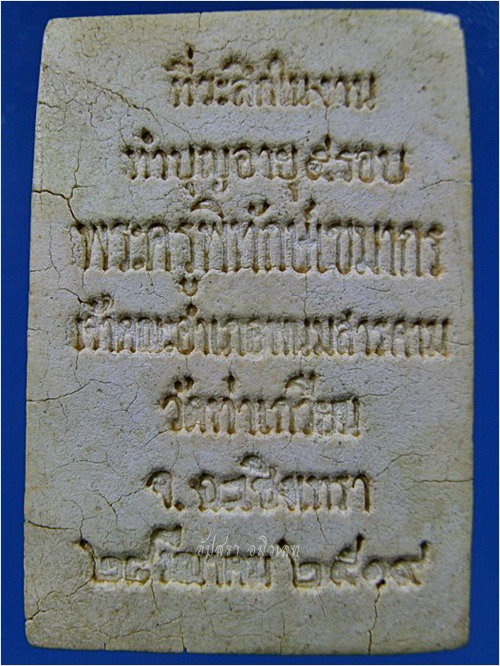 ที่ระลึกในงาน
ทำบุญอายุ ๕ รอบ
พระครูพิทักษ์เขมากร
เจ้าคณะอำเภอพนมสารคาม
วัดท่าเกวียน
จ. ฉะเชิงเทรา
๒๘ มีนาคม ๒๕๑๙